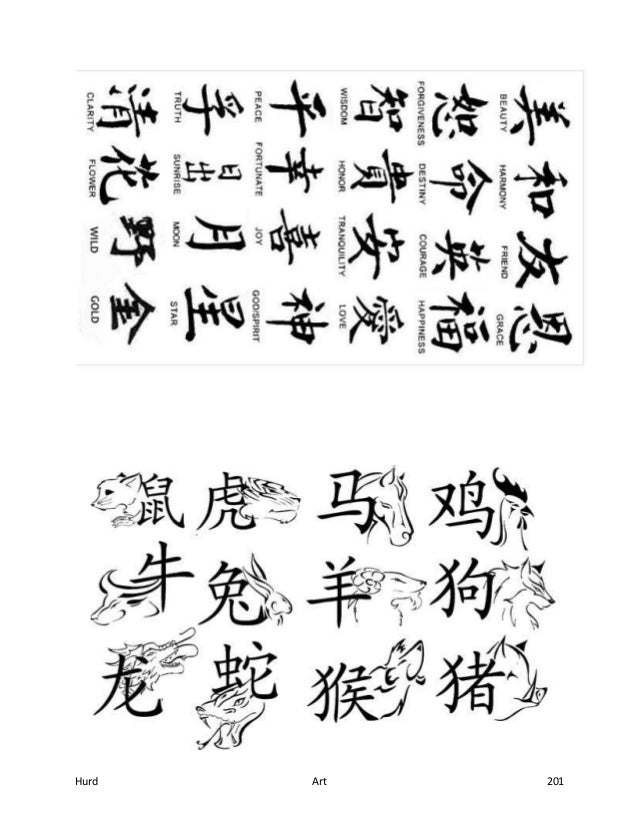 美 和 友 恩
BEAUTY HARMONY FRIEND GRACE
恕 命 英 福
FORGIVENESS DESTINY COURAGE HAPPINESS
智 貴 安 愛
WISDOM HONOR TRANQUILITY LOVE
平 幸 喜 神
PEACE FORTUNATE JOY GOD/SPIRIT
孚 日出 月 星
TRUTH SUNRISE MOON STAR
清 花 野 金
CLARITY FLOWER WILD GOLD
鼠 虎 马 鸡
牛 兔 羊 狗
龙 蛇 猴 猪
Hurd Art 201